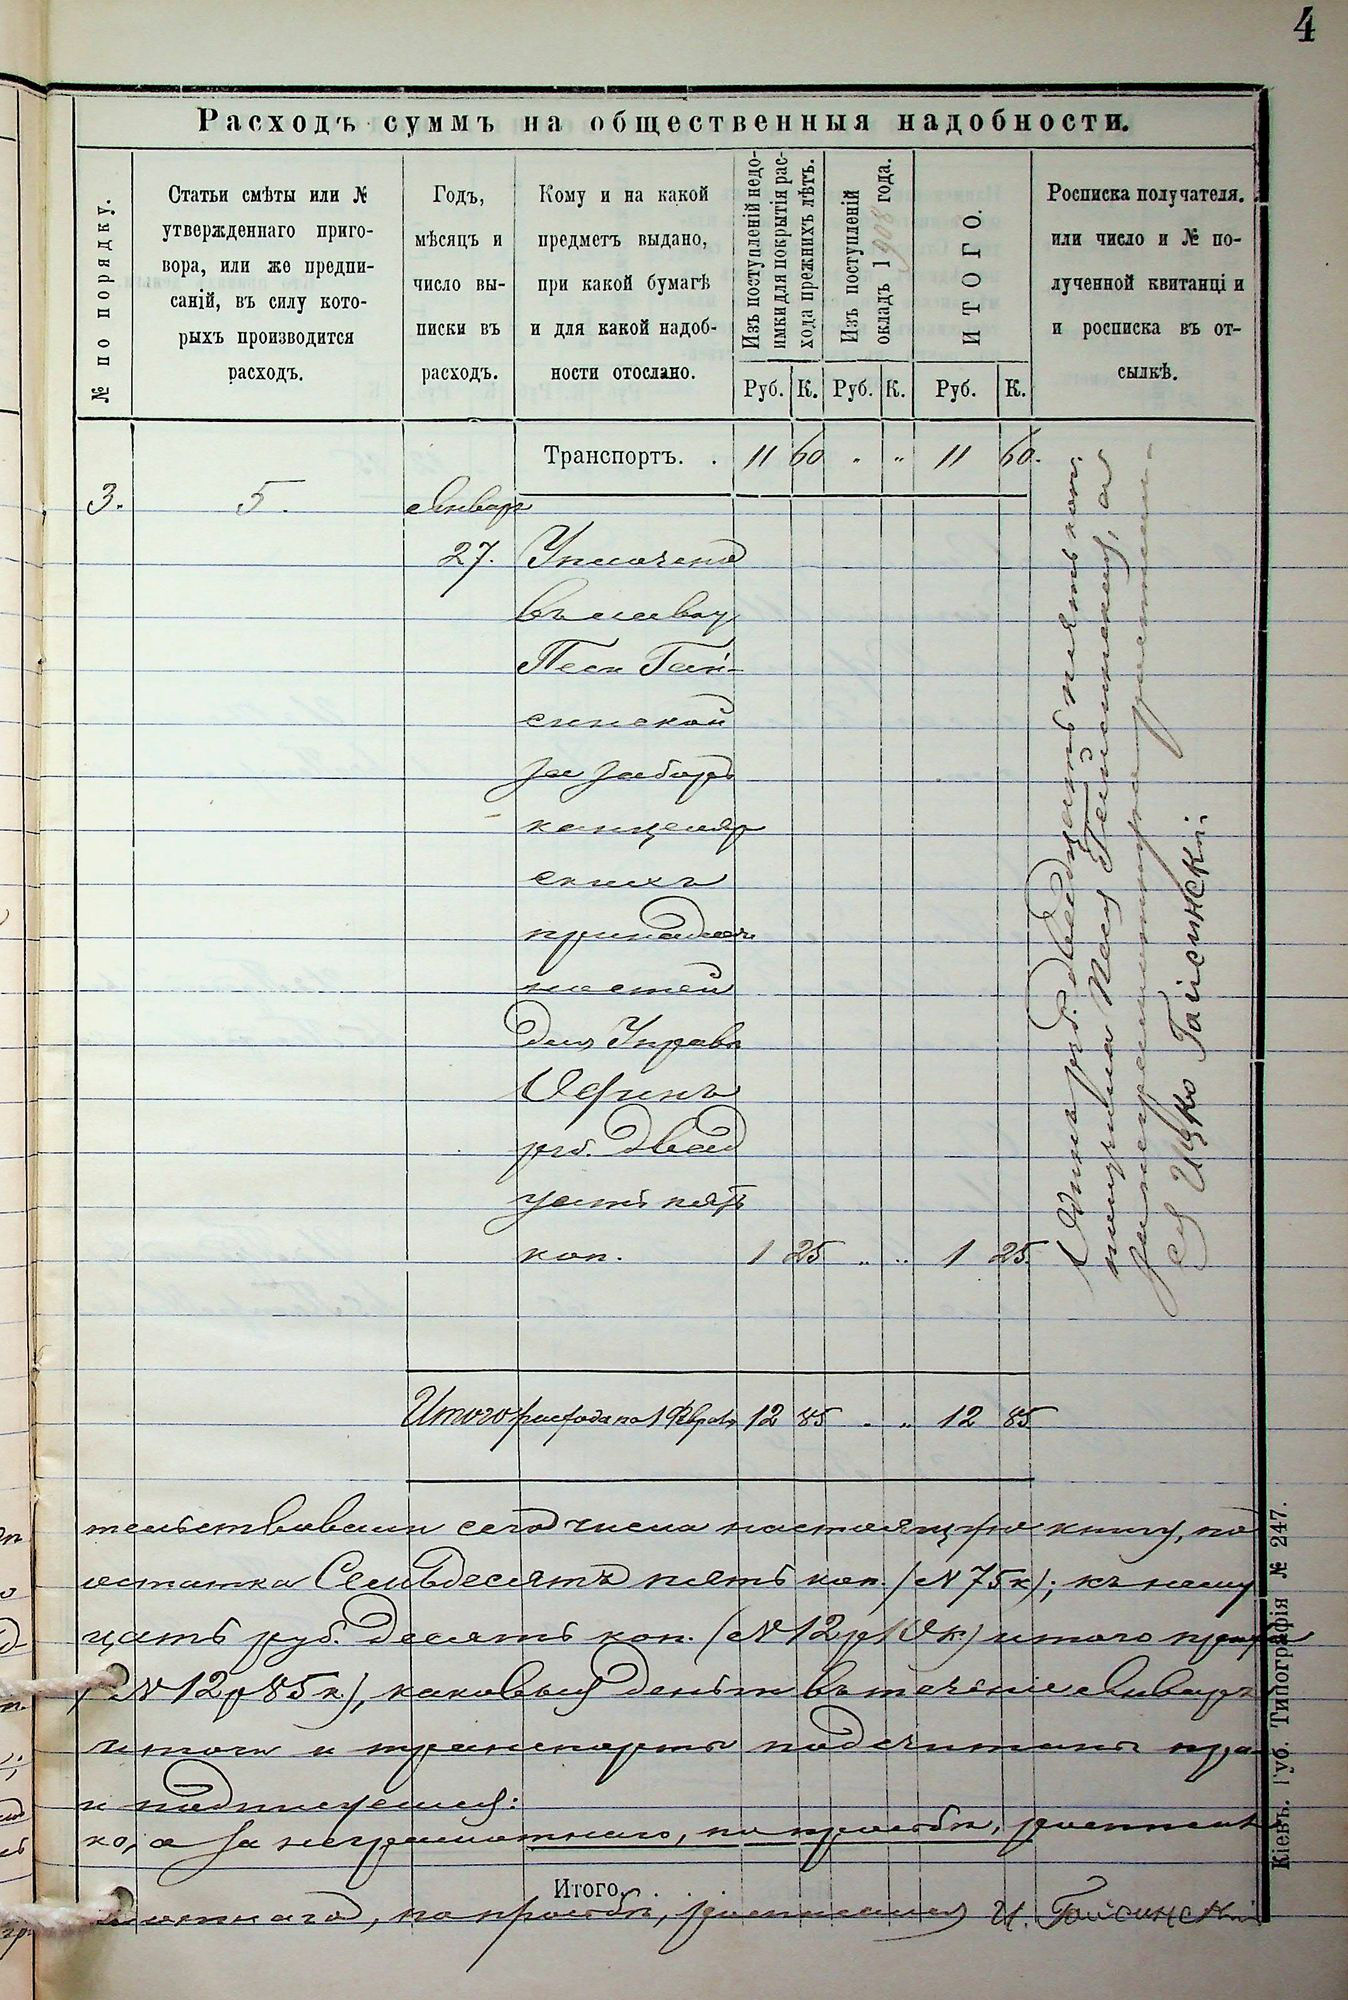 4
Расходъ суммъ на общественныя надобности.
№ по порядку.
Статьи смѣты или №
утвержденнаго приго-
вора, или же предпи-
саній, въ силу кото-
рыхъ производится
расходъ.
Годъ,
мѣсяцъ и
число вы-
писки въ
расходъ.
Кому и на какой
предметъ выдано,
при какой бумагѣ
и для какой надоб-
ности отослано.
Изъ поступленій недо-
имки для покрытія рас-
хода прежнихъ лѣтъ.
Изъ поступленій
окладъ 1908 года.
ИТОГО.
Росписка получателя.
или число и № по-
лученной квитанці и
и росписка въ от-
сылкѣ.
Руб. К. Руб. К. Руб. К.
Транспортъ. . 11 60 " " 11 60.
3. 5. Январ
27. Уплочено
въ лавку
Песи Гай-
синской
за заборъ
канцеляр
скихъ
принадлеж
ностей
для Управл
Одинъ
руб. двад
цать пять
коп. 1 25 " " 1 25.
Один руб. двадцать пять коп.
получила Песя Гайсинская, а
за неграмотную расписал-
ся Ицко Гайсинскій.
Итого расхода по 1 Февраля 12 85 " " 12 85
тельствовали сего числа настоящую книгу, по
остатка Семьдесятъ пять коп. (№ 75 к); къ нему
цать руб. десять коп. (№ 12 р 10 к) итого
(№ 12 р 85 к), каковыя деньги въ теченіе Января
итоги и транспорты подсчитаны
и подписуемся:
ко, а за неграмотнаго, по просьбѣ,
Итого. . . .
мотнаго, по просьбѣ, росписался И. Гайсинскій
Кіевъ. Губ. Типографія № 247.